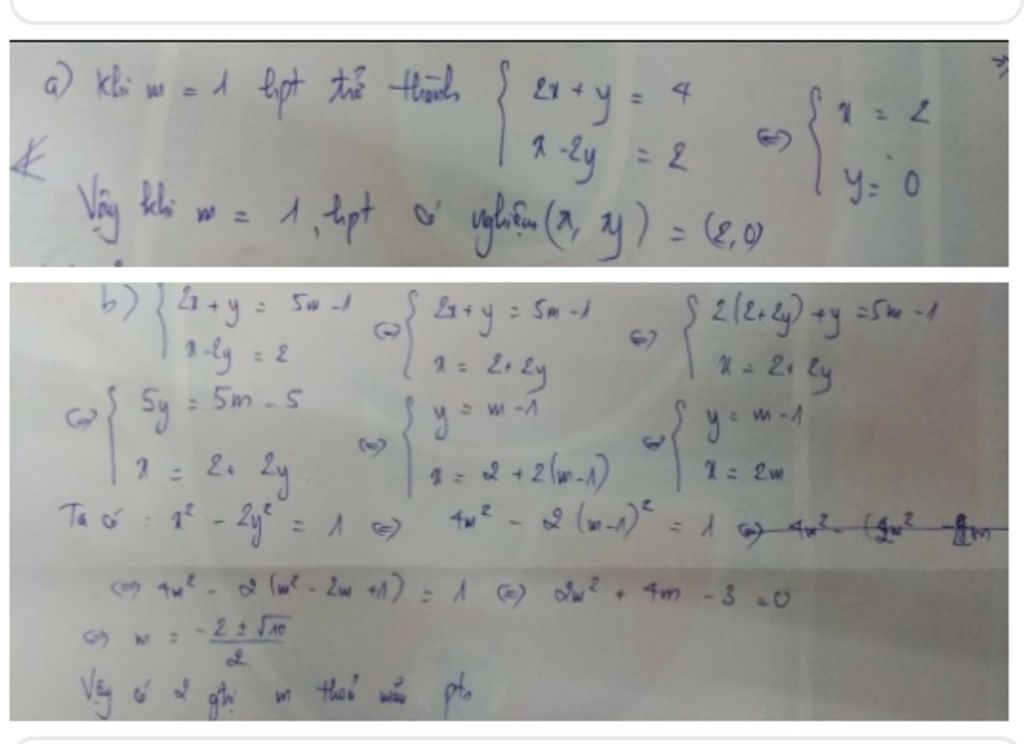 a) Khi m = 1 hpt trở thành { 2x + y = 4 ; x - 2y = 2 ⇔ { x = 2 ; y = 0
Vậy khi m = 1, hpt có nghiệm (x, xy) = (2,0)
b) { 2x + y = 5m - 1 ; x - 2y = 2 ⇔ { 2x + y = 5m - 1 ; x = 2 + 2y ⇔ { 2(2+2y) + y = 5m - 1 ; x = 2 + 2y
⇔ { 5y = 5m - 5 ; x = 2 + 2y ⇔ { y = m - 1 ; x = 2 + 2(m-1) ⇔ { y = m - 1 ; x = 2m
Ta có : x² - 2y² = 1 ⇔ 4m² - 2(m-1)² = 1 ⇔
⇔ 4m² - 2(m² - 2m + 1) = 1 ⇔ 2m² + 4m - 3 = 0
⇔ m = -2 ± √10 / 2
Vậy có 2 gtrị m thoả mãn